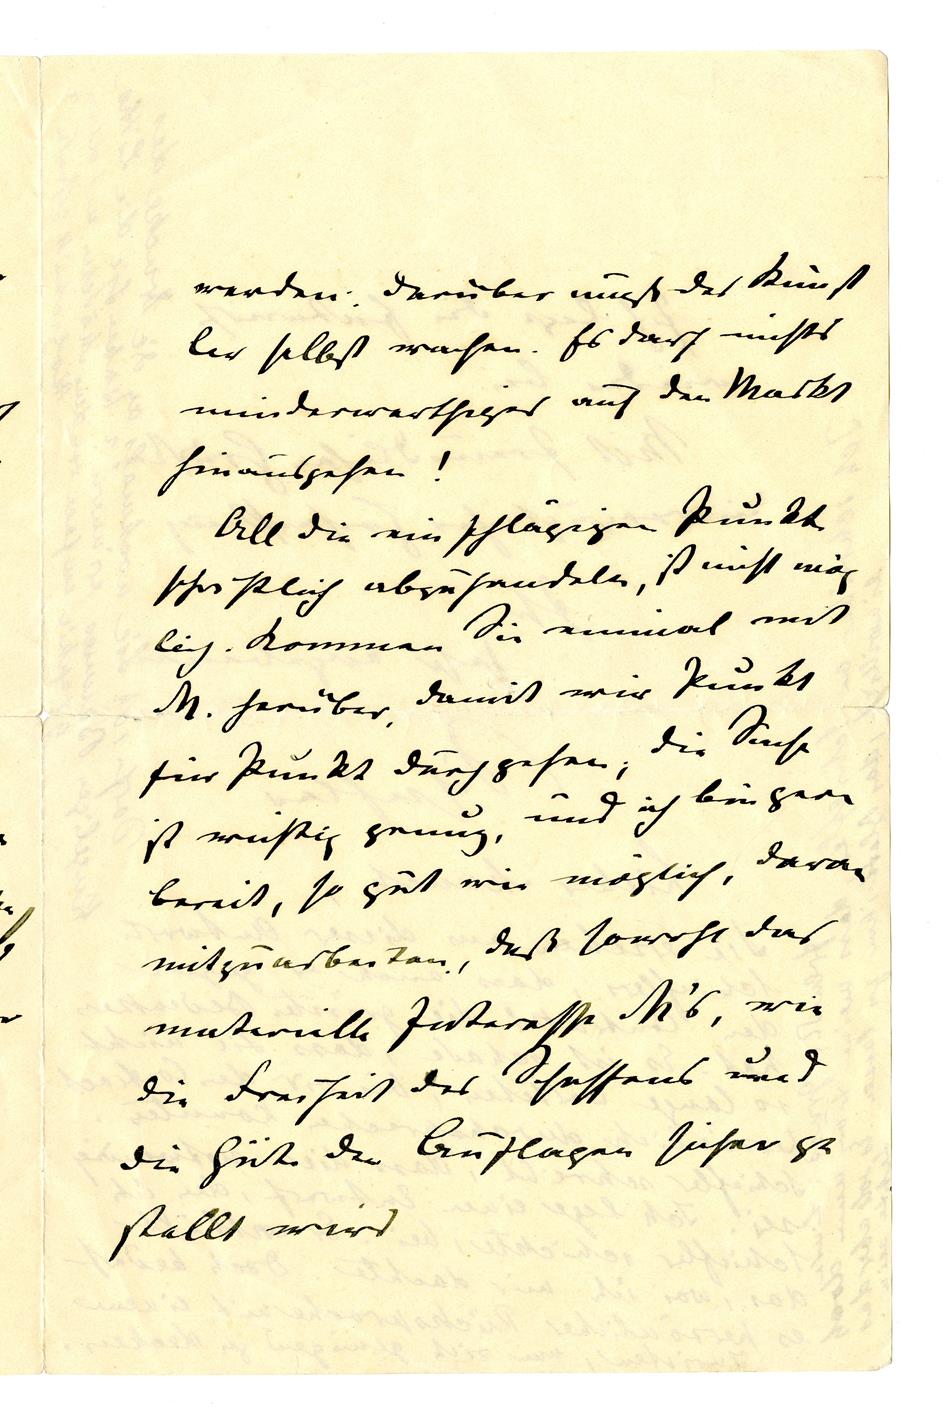 werden. darüber muß der Künst
ler selbst wachen. Es darf nichts
minderwerthiges auf den Markt
hinausgehen!
All die einschlägigen Punkte
schriftlich abzuhandeln, ist nicht mög
lich. Kommen Sie einmal mit
M. herüber, damit wir Punkt
für Punkt durchgehen, die Sache
ist wichtig genug, und ich bin gern
bereit, so gut wie möglich, daran
mitzuarbeiten, daß sowohl das
materielle Interesse M's, wie
die Freiheit des Schaffens und
die Güte der Auflagen sicher ge
stellt wird